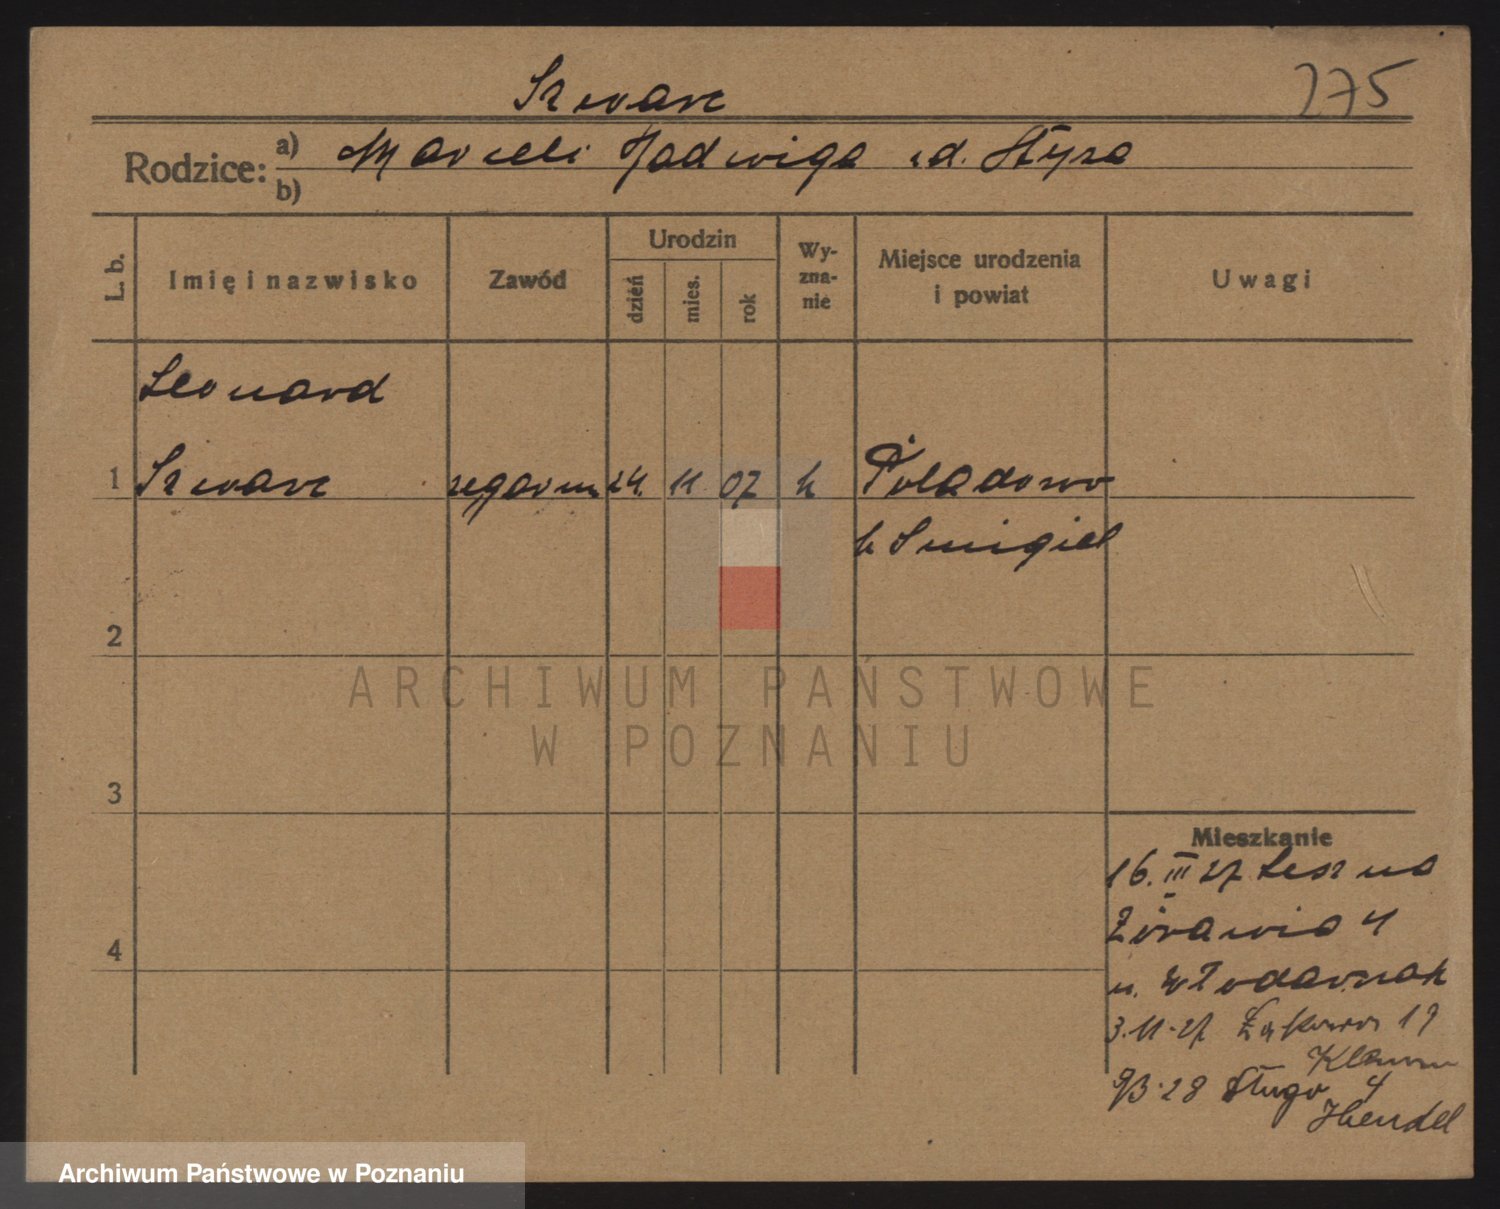 Szwarc
275
Rodzice: a) Marceli Jadwiga z d. Styza
b)
L. b.
Imię i nazwisko
Zawód
Urodzin
dzień
mies.
rok
Wy-
zna-
nie
Miejsce urodzenia
i powiat
Uwagi
Leonard
1 Szwarc zegarm 24. 11 07 k Poladowo
k Smigiel
2
ARCHIWUM PAŃSTWOWE
W POZNANIU
3
Mieszkanie
16. III 27 Leszno
Żórawia 4
u. Włodarczak
4
3.11.27 Łąkowa 19
9/3.28 Długa 4
Hendel
Archiwum Państwowe w Poznaniu